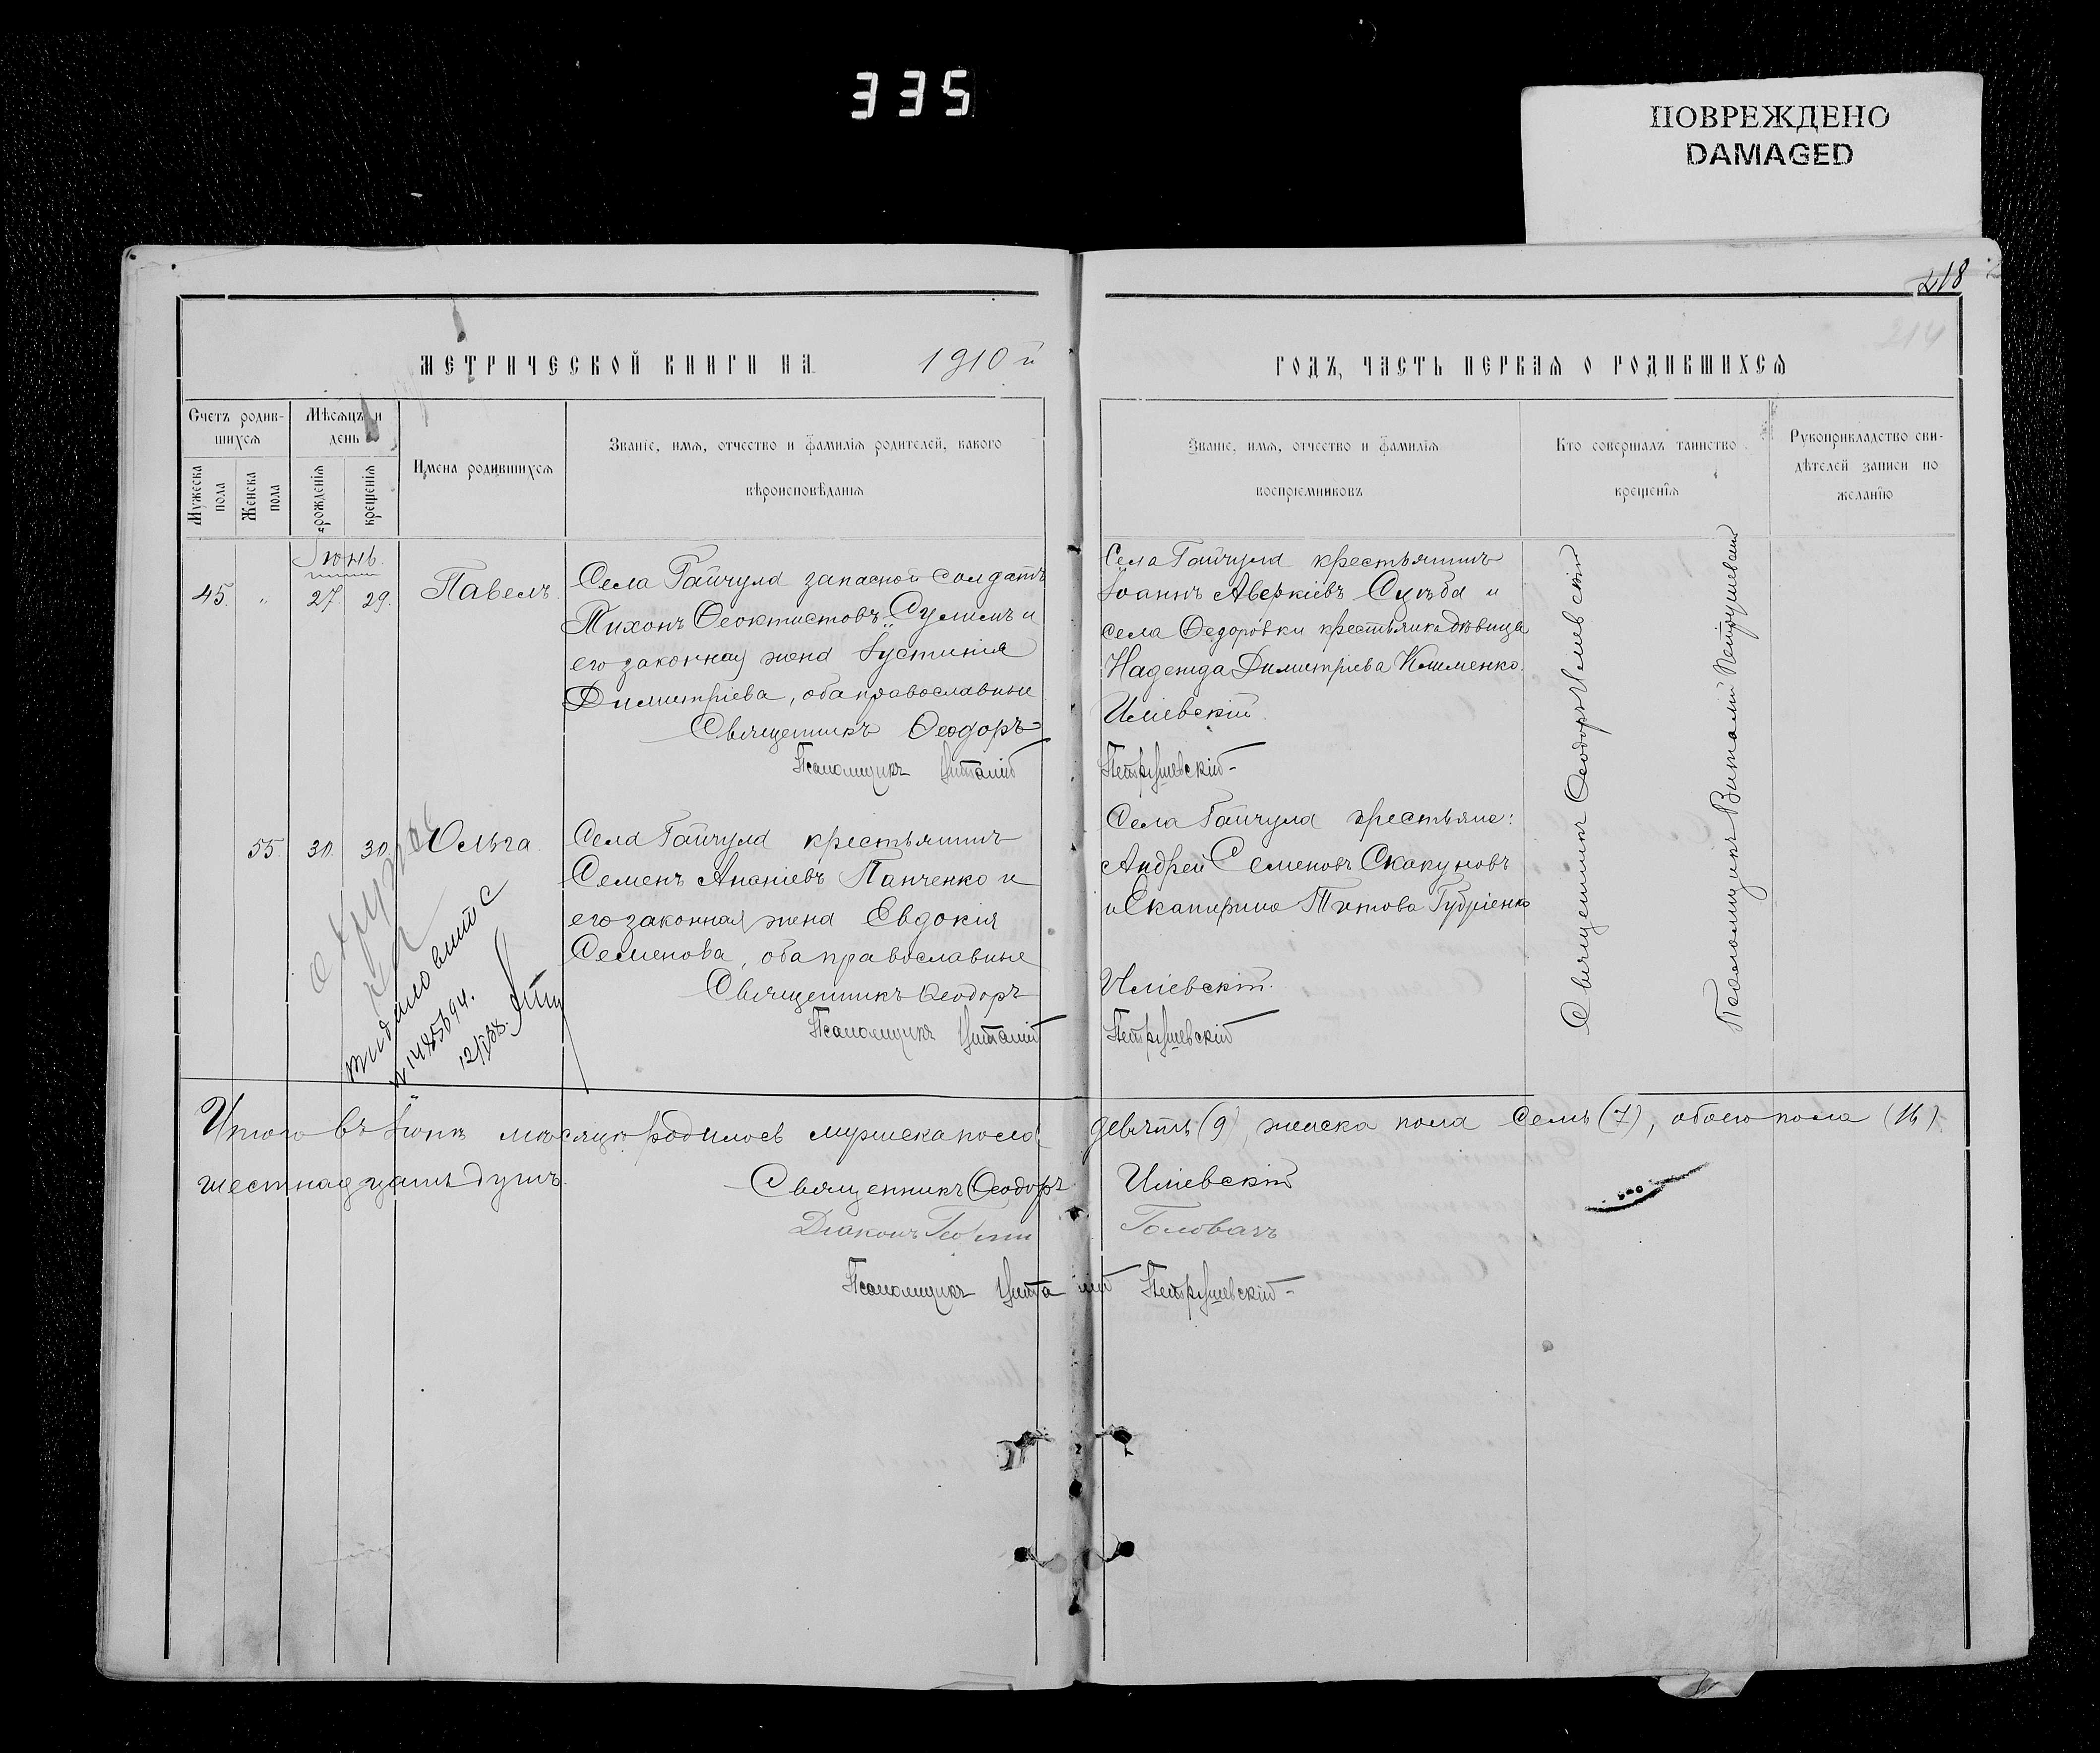 335
ПОВРЕЖДЕНО
DAMAGED
218
214
МЕТРИЧЕСКОЙ КНИГИ НА 1910 й
ГОДЪ, ЧАСТЬ ПЕРВАЯ О РОДИВШИХСЯ
Счетъ родив-
шихся
Мѣсяцъ и
день
Мужеска
пола
Женска
пола
рожденія
крещенія
Имена родившихся
Званіе, имя, отчество и фамилія родителей, какого
вѣроисповѣданія
Званіе, имя, отчество и фамилія
воспріемниковъ
Кто совершалъ таинство
крещенія
Рукоприкладство сви-
дѣтелей записи по
желанію
Іюнь.
45. " 27. 29. Павелъ.
Села Гайчула запасной солдатъ
Тихонъ Ѳеоктистовъ Сулимъ и
его законная жена Іустинія
Димитріева, оба православные
Священникъ Ѳеодоръ
Псаломщикъ Виталій
Села Гайчула крестьянинъ
Іоаннъ Аверкіевъ Судьба и
села Ѳедоровки крестьянка дѣвица
Надежда Димитріева Клименко.
Иліевскій.
Петрушевскій
55. 30. 30. Ольга.
Села Гайчула крестьянинъ
Семенъ Ананіевъ Панченко и
его законная жена Евдокія
Семенова, оба православные
Священникъ Ѳеодоръ
Псаломщикъ Виталій
Села Гайчула крестьяне:
Андрей Семеновъ Скакуновъ
и Екатерина Титова Гудріенко
Иліевскій.
Петрушевскій
Священникъ Ѳеодоръ Иліевскій
Псаломщикъ Виталій Петрушевскій
Итого въ Іюнѣ мѣсяцѣ родилось мужеска пола девять (9), женска пола семь (7), обоего пола (16)
шестнадцать душъ.
Священникъ Ѳеодоръ Иліевскій
Діаконъ Георгій Головачъ
Псаломщикъ Виталій Петрушевскій